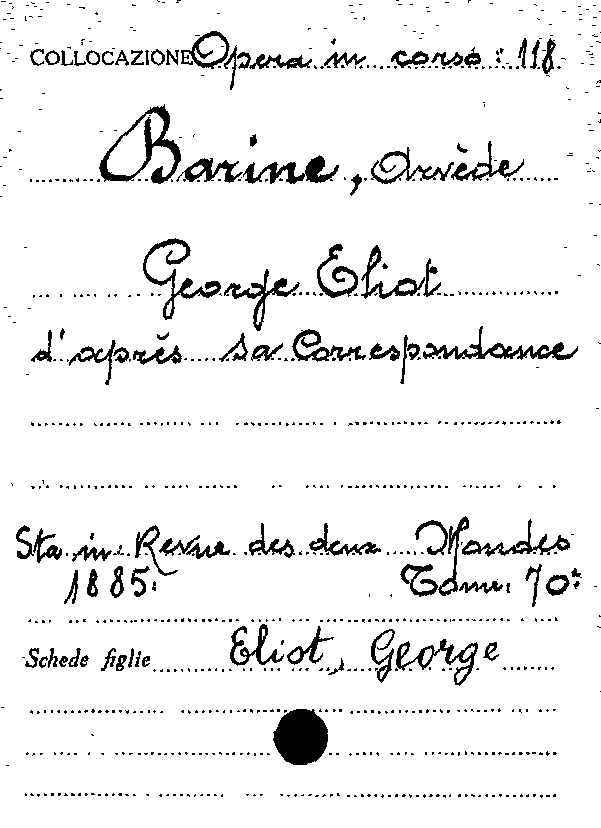 COLLOCAZIONE Opera in corso: 118
Barine, Arvède
George Eliot
d'après sa Correspondance
Sta in: Revue des deux Mondes
1885: Tome: 70:
Schede figlie Eliot, George